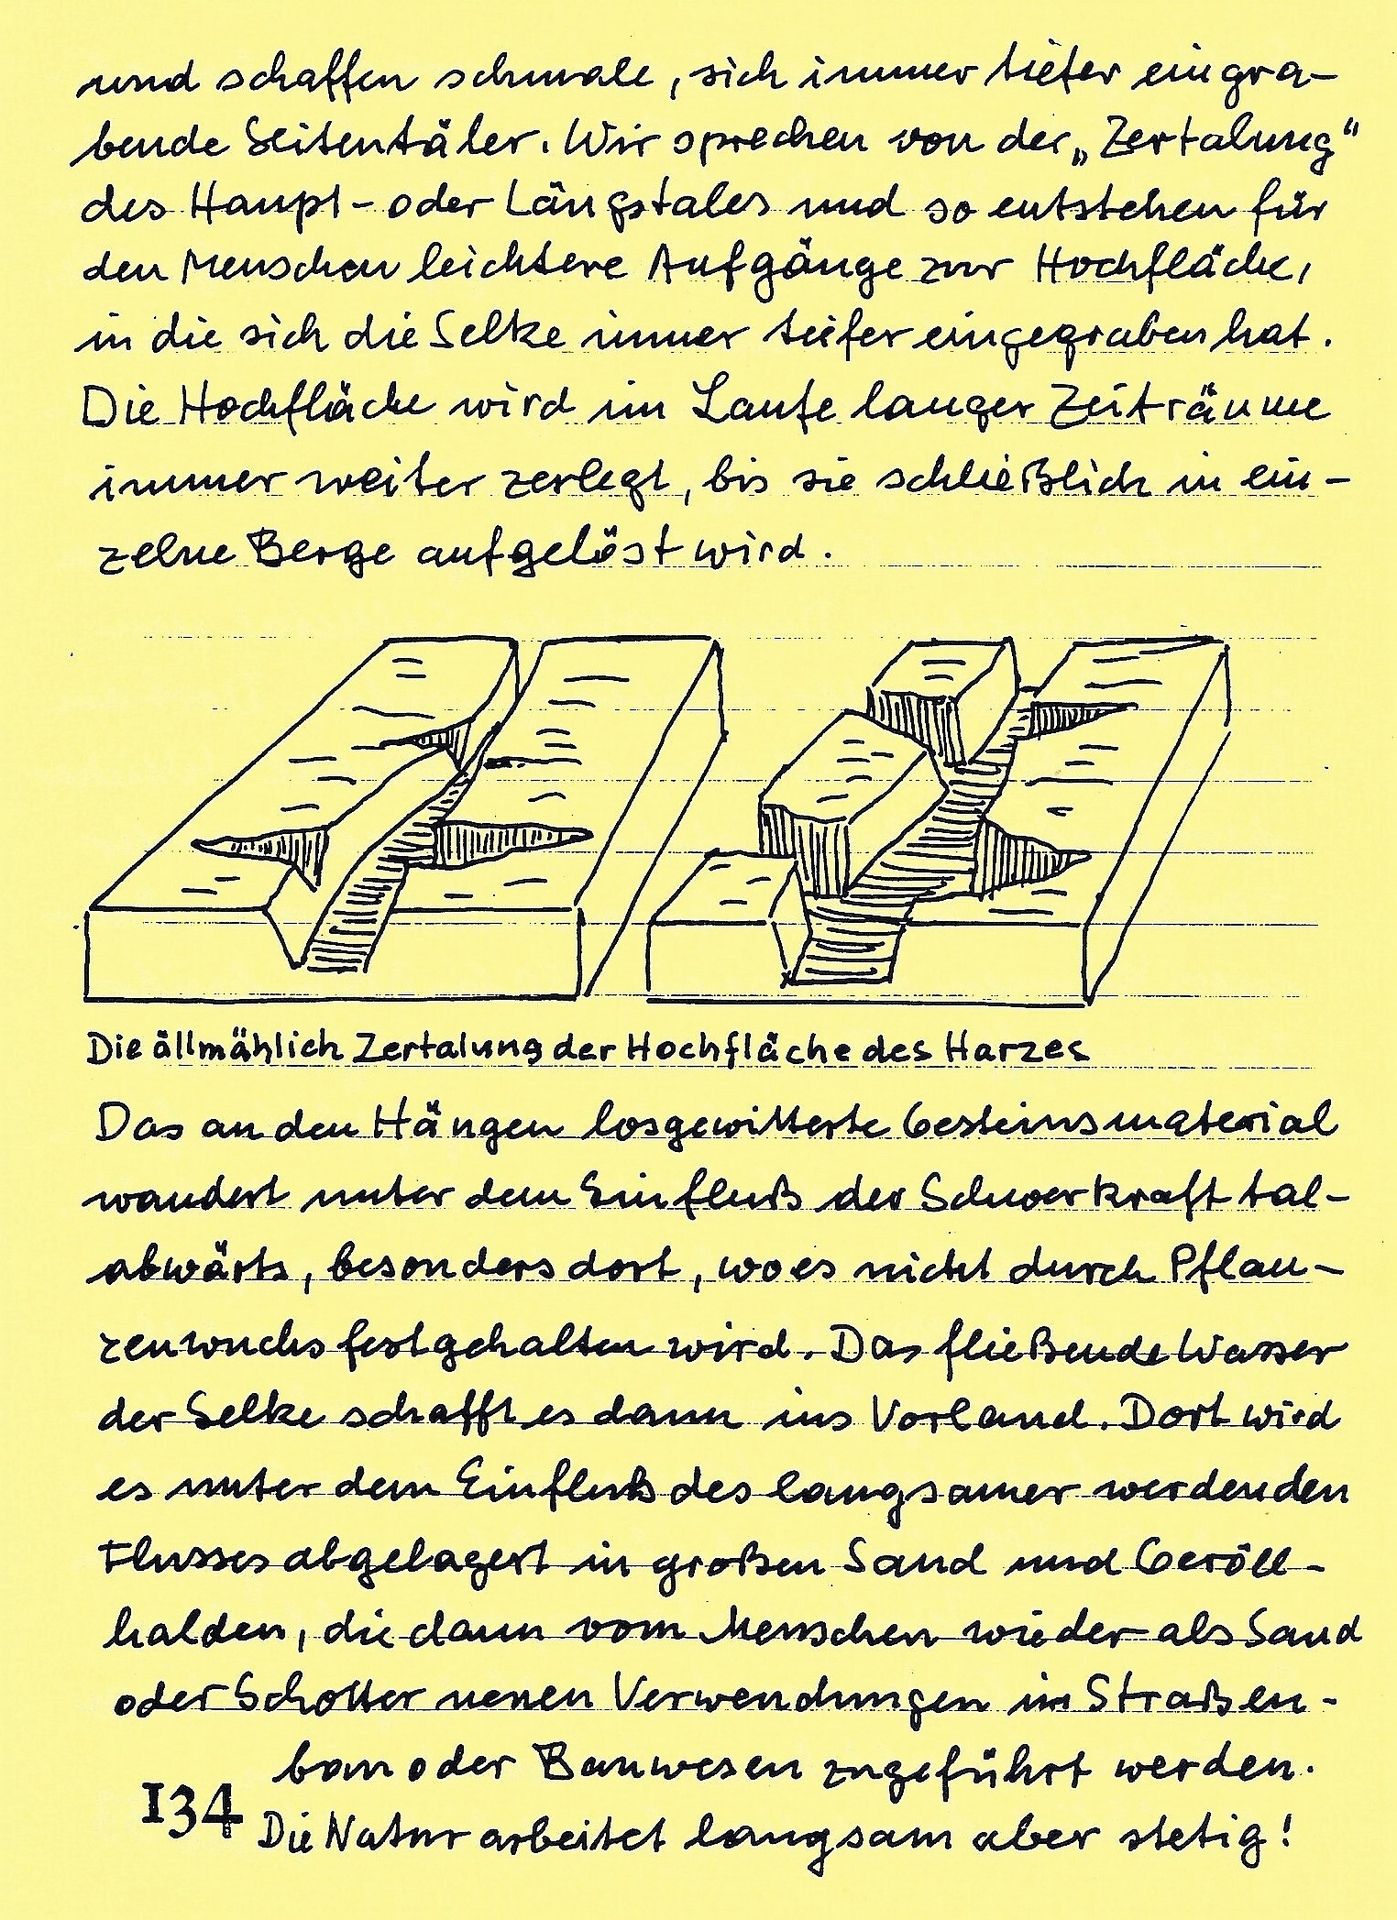 und schaffen schmale, sich immer tiefer eingra-
bende Seitentäler. Wir sprechen von der „Zertalung“
des Haupt- oder Längstales und so entstehen für
den Menschen leichtere Aufgänge zur Hochfläche,
in die sich die Selke immer tiefer eingegraben hat.
Die Hochfläche wird im Laufe langer Zeiträume
immer weiter zerlegt, bis sie schließlich in ein-
zelne Berge aufgelöst wird.
Die ällmählich Zertalung der Hochfläche des Harzes
Das an den Hängen losgewitterte Gesteinsmaterial
wandert unter dem Einfluß der Schwerkraft tal-
abwärts, besonders dort, wo es nicht durch Pflan-
zenwuchs festgehalten wird. Das fließende Wasser
der Selke schafft es dann ins Vorland. Dort wird
es unter dem Einfluß des langsamer werdenden
Flusses abgelagert in großen Sand und Geröll-
halden, die dann vom Menschen wieder als Sand
oder Schotter neuen Verwendungen im Straßen-
bau oder Bauwesen zugeführt werden.
134 Die Natur arbeitet langsam aber stetig!